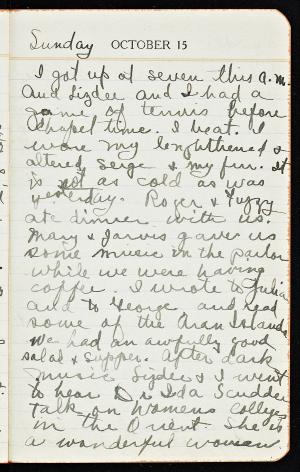 Sunday OCTOBER 15
I got up at seven this a.m.
and Lizdee and I had a
game of tennis before
Chapel time. I beat. I
wore my lengthened &
altered serge & my fur. It
is not as cold as was
yesterday. Roger & Fuzzy
ate dinner with us.
Mary & Jarvis gave us
some music in the parlor
while we were having
coffee. I wrote to Julia
and to George and read
some of the Aran Islands
We had an awfully good
salad & supper. After dark
music Lizdee & I went
to hear Dr Ida Scudder
talk on Womens colleges
in the Orient She is
a wonderful woman.